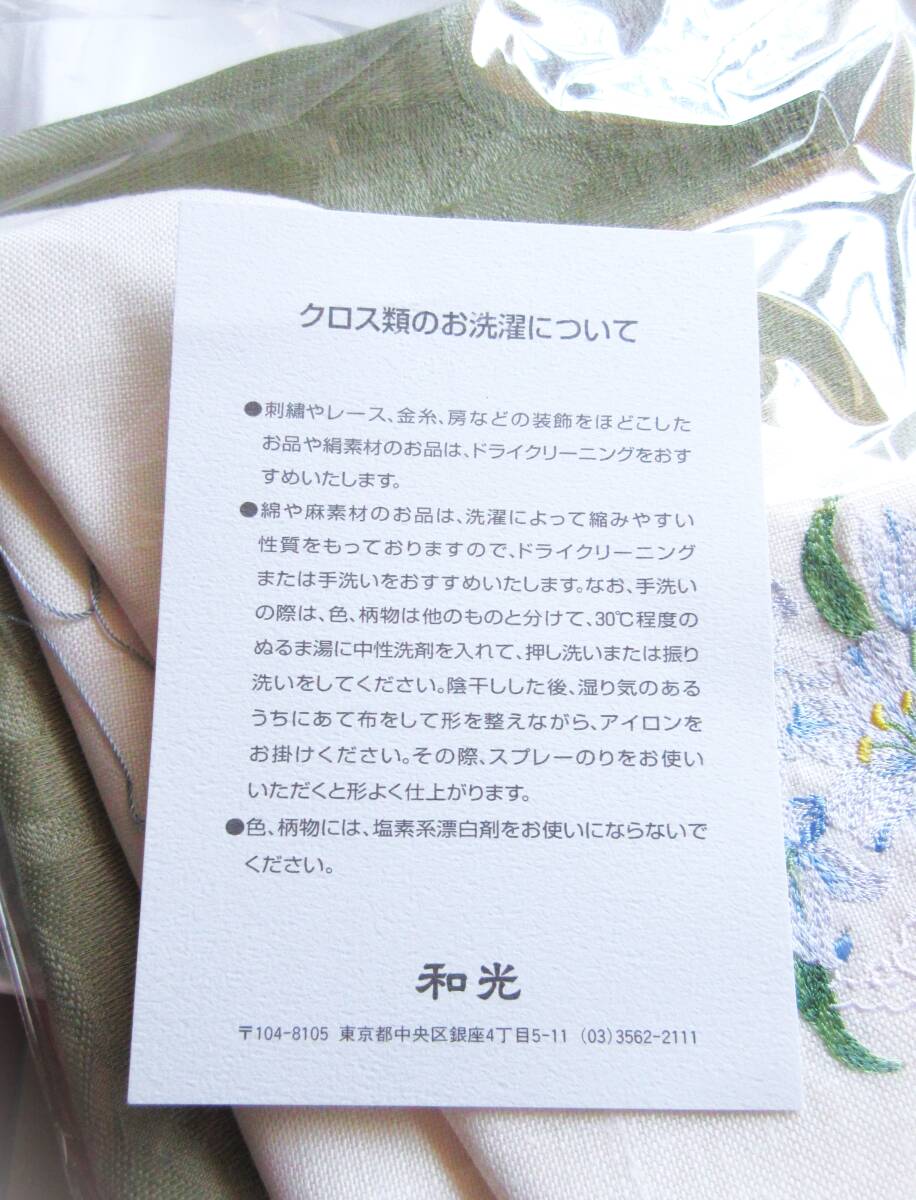 クロス類のお洗濯について
●刺繡やレース、金糸、房などの装飾をほどこした
お品や絹素材のお品は、ドライクリーニングをおす
すめいたします。
●綿や麻素材のお品は、洗濯によって縮みやすい
性質をもっておりますので、ドライクリーニング
または手洗いをおすすめいたします。なお、手洗い
の際は、色、柄物は他のものと分けて、30℃程度の
ぬるま湯に中性洗剤を入れて、押し洗いまたは振り
洗いをしてください。陰干しした後、湿り気のある
うちにあて布をして形を整えながら、アイロンを
お掛けください。その際、スプレーのりをお使い
いただくと形よく仕上がります。
●色、柄物には、塩素系漂白剤をお使いにならないで
ください。
和光
〒104-8105 東京都中央区銀座4丁目5-11 (03)3562-2111